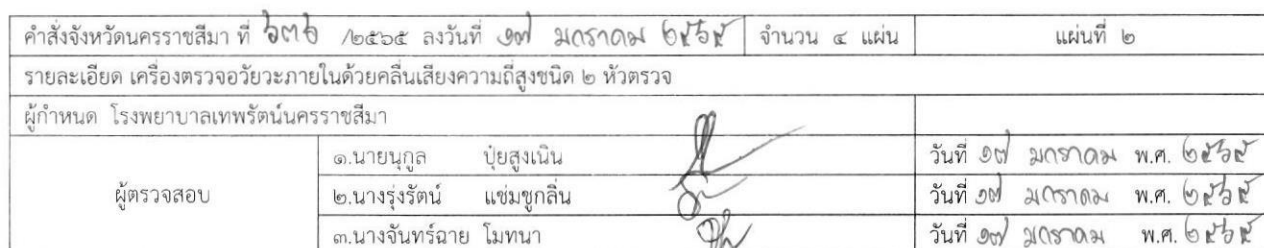 คำสั่งจังหวัดนครราชสีมา ที่ ๖๓๖ /๒๕๖๕ ลงวันที่ ๑๗ มกราคม ๒๕๖๕ จำนวน ๔ แผ่น แผ่นที่ ๒
รายละเอียด เครื่องตรวจอวัยวะภายในด้วยคลื่นเสียงความถี่สูงชนิด ๒ หัวตรวจ
ผู้กำหนด โรงพยาบาลเทพรัตน์นครราชสีมา
ผู้ตรวจสอบ
๑.นายนุกูล ปุ๋ยสูงเนิน วันที่ ๑๗ มกราคม พ.ศ. ๒๕๖๕
๒.นางรุ่งรัตน์ แช่มชูกลิ่น วันที่ ๑๗ มกราคม พ.ศ. ๒๕๖๕
๓.นางจันทร์ฉาย โมทนา วันที่ ๑๗ มกราคม พ.ศ. ๒๕๖๕